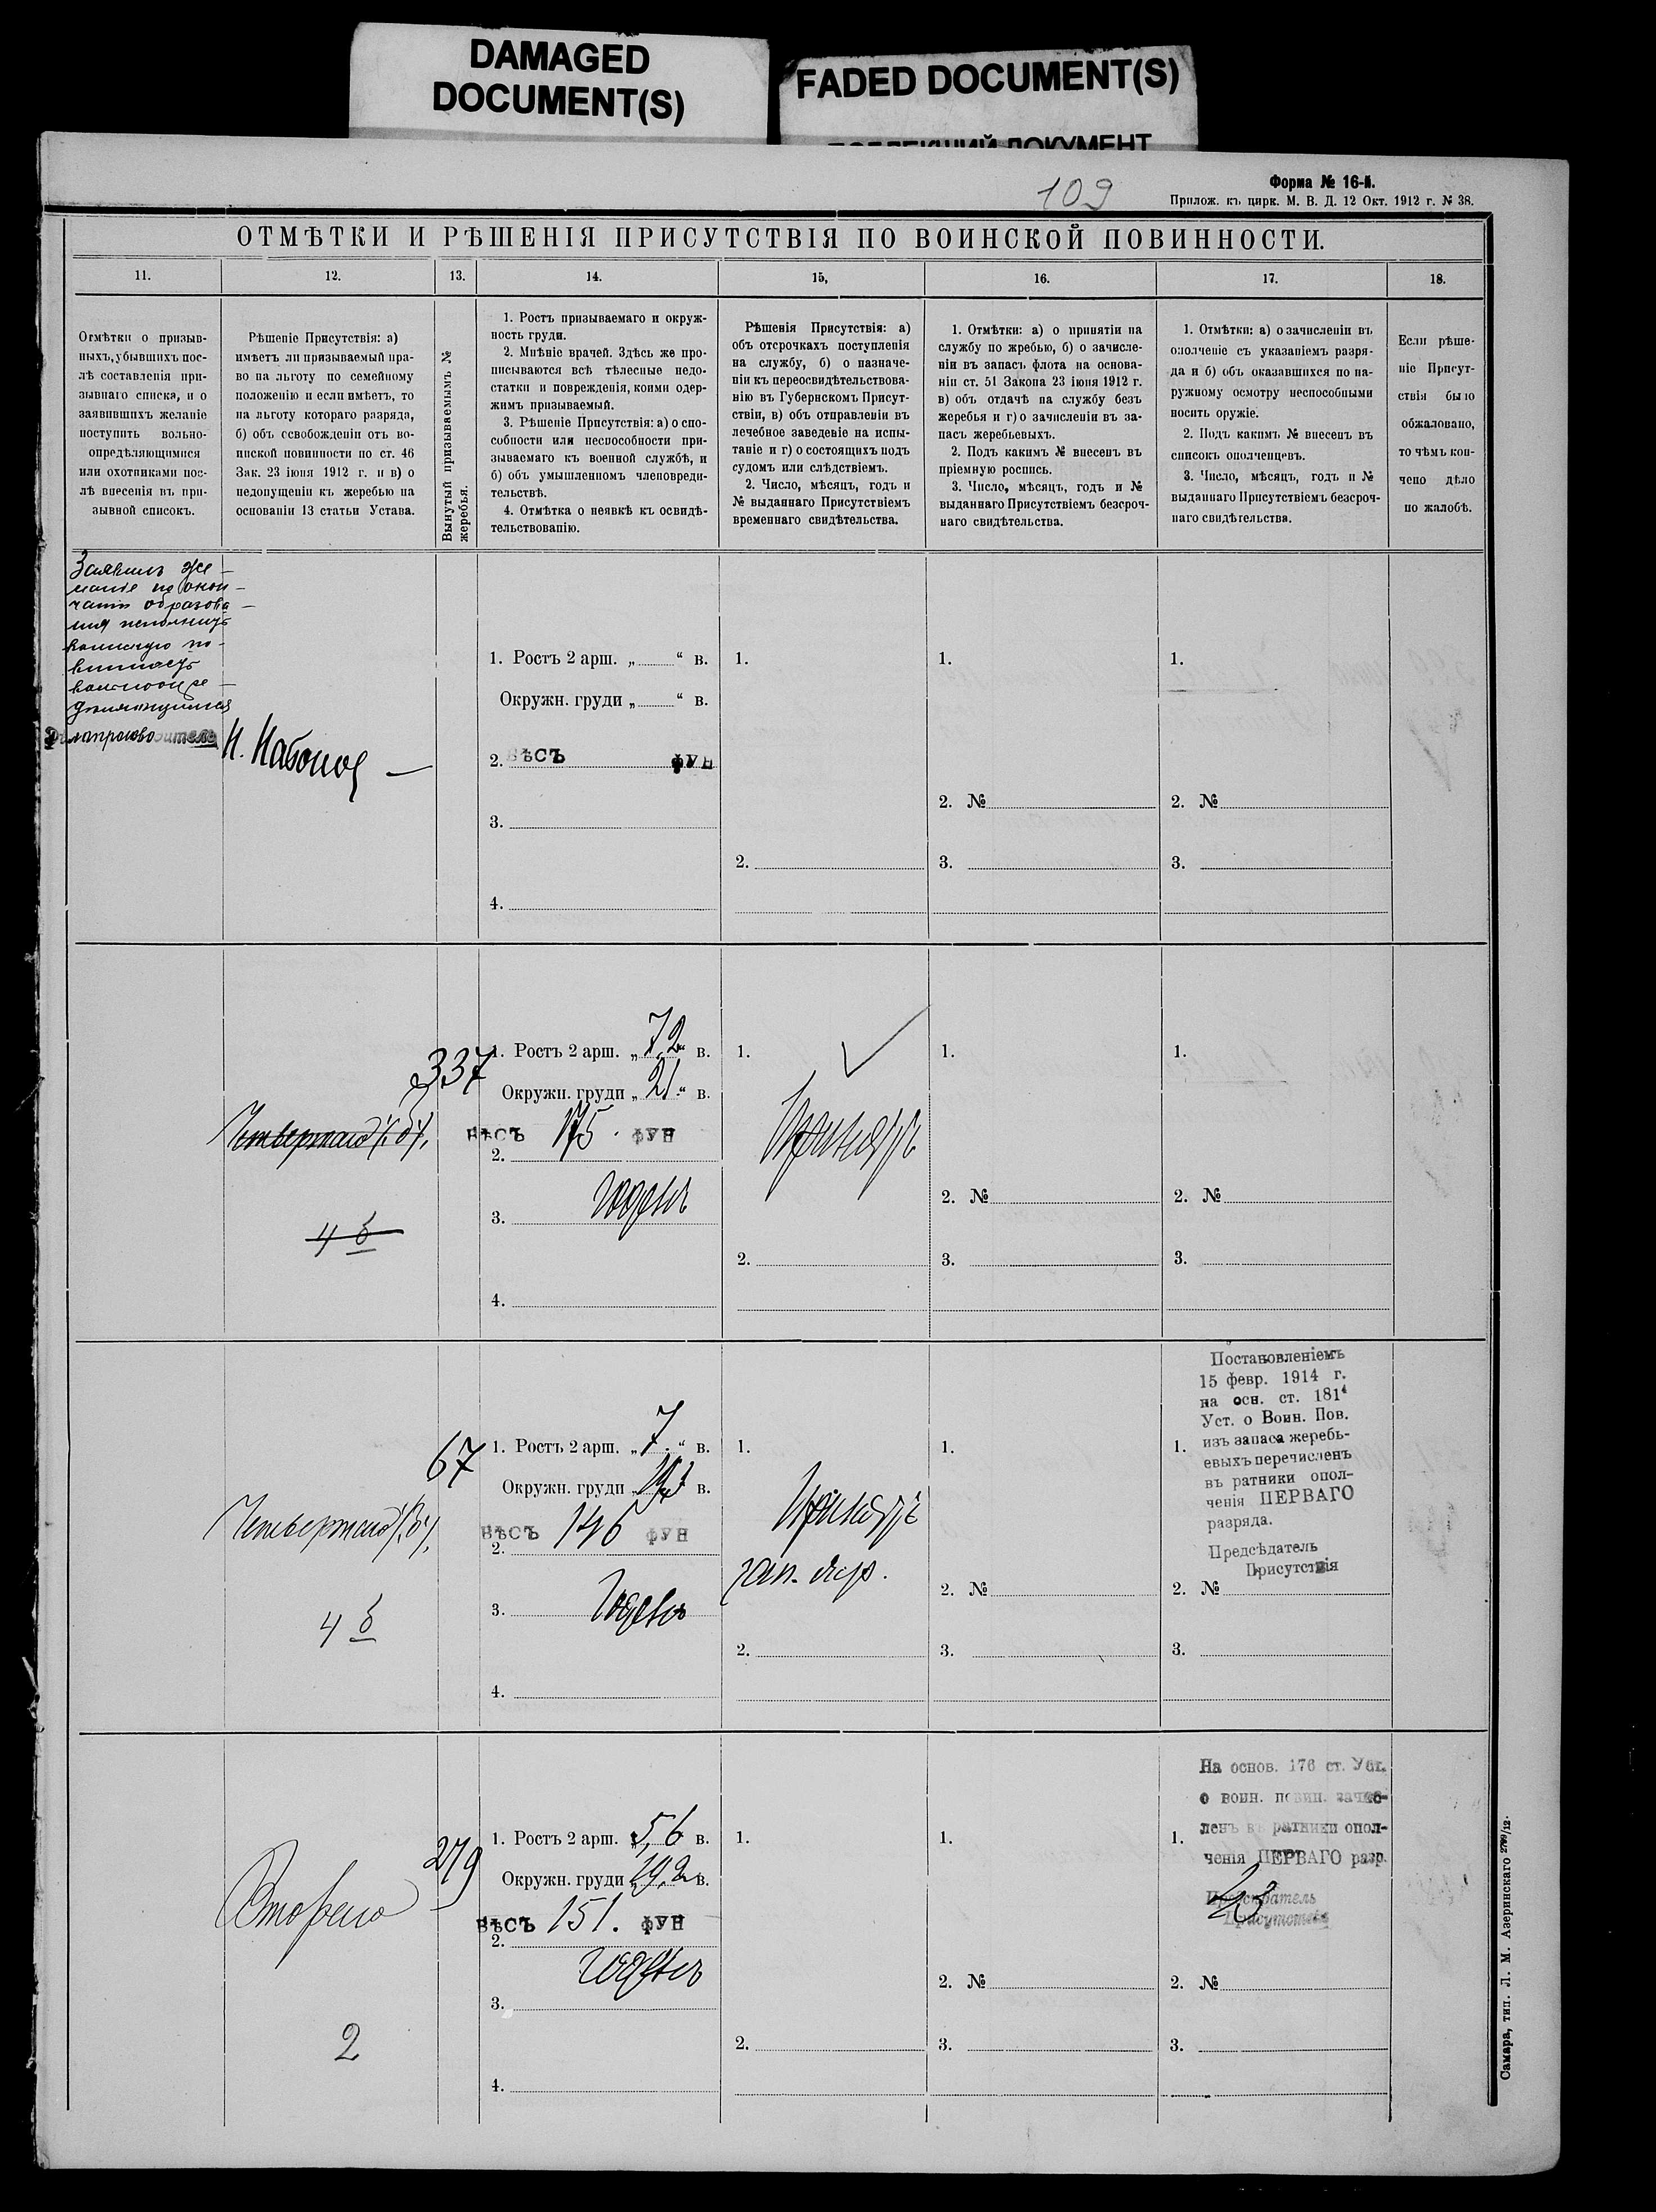 DAMAGED
DOCUMENT(S)
FADED DOCUMENT(S)
ДОКУМЕНТ
109
Форма № 16-й.
Прилож. къ цирк. М. В. Д. 12 Окт. 1912 г. № 38.
ОТМѢТКИ И РѢШЕНІЯ ПРИСУТСТВІЯ ПО ВОИНСКОЙ ПОВИННОСТИ.
11.
12.
13.
14.
15.
16.
17.
18.
Отмѣтки о призыв-
ныхъ, убывшихъ пос-
лѣ составленія при-
зывнаго списка, и о
заявившихъ желаніе
поступить вольно-
опредѣляющимися
или охотниками пос-
лѣ внесенія въ при-
зывной списокъ.
Рѣшеніе Присутствія: а)
имѣетъ ли призываемый пра-
во на льготу по семейному
положенію и если имѣетъ, то
на льготу котораго разряда,
б) объ освобожденіи отъ во-
инской повинности по ст. 46
Зак. 23 іюня 1912 г. и в) о
недопущеніи къ жеребью на
основаніи 13 статьи Устава.
Вынутый призываемымъ №
жеребья.
1. Ростъ призываемаго и окруж-
ность груди.
2. Мнѣніе врачей. Здѣсь же про-
писываются всѣ тѣлесные недо-
статки и поврежденія, коими одер-
жимъ призываемый.
3. Рѣшеніе Присутствія: а) о спо-
собности или неспособности при-
зываемаго къ военной службѣ, и
б) объ умышленномъ членовреди-
тельствѣ.
4. Отмѣтка о неявкѣ къ освидѣ-
тельствованію.
Рѣшенія Присутствія: а)
объ отсрочкахъ поступленія
на службу, б) о назначе-
ніи къ переосвидѣтельствова-
нію въ Губернскомъ Присут-
ствіи, в) объ отправленіи въ
лечебное заведеніе на испы-
таніе и г) о состоящихъ подъ
судомъ или слѣдствіемъ.
2. Число, мѣсяцъ, годъ и
№ выданнаго Присутствіемъ
временнаго свидѣтельства.
1. Отмѣтки: а) о принятіи на
службу по жребью, б) о зачисле-
ніи въ запасъ флота на основа-
ніи ст. 51 Закона 23 іюня 1912 г.
в) объ отдачѣ на службу безъ
жеребья и г) о зачисленіи въ за-
пасъ жеребьевыхъ.
2. Подъ какимъ № внесенъ въ
пріемную роспись.
3. Число, мѣсяцъ, годъ и №
выданнаго Присутствіемъ безсроч-
наго свидѣтельства.
1. Отмѣтки: а) о зачисленіи въ
ополченіе съ указаніемъ разря-
да и б) объ оказавшихся по на-
ружному осмотру неспособными
носить оружіе.
2. Подъ какимъ № внесенъ въ
списокъ ополченцевъ.
3. Число, мѣсяцъ, годъ и №
выданнаго Присутствіемъ безсроч-
наго свидѣтельства.
Если рѣше-
ніе Присут-
ствія было
обжаловано,
то чѣмъ кон-
чено дѣло
по жалобѣ.
Заявилъ же-
ланіе по окон-
чаніи образова-
нія исполнить
воинскую по-
винность
вольноопре-
дѣляющимся
Дѣлопроизводитель
1. Ростъ 2 арш. „ “ в.
Окружн. груди „ “ в.
2. ВѢСЪ ФУН
3.
4.
1.
2.
1.
2. №
3.
1.
2. №
3.
Четвертаго
4 б
337
1. Ростъ 2 арш. „ 7,2 “ в.
Окружн. груди „ 21 “ в.
ВѢСЪ 175 ФУН
2.
3. Годенъ
4.
1.
Принятъ
2.
1.
2. №
3.
1.
2. №
3.
Четвертаго
4 б
67
1. Ростъ 2 арш. „ 7 “ в.
Окружн. груди в.
ВѢСЪ 146 ФУН
2.
3. Годенъ
4.
1.
Принятъ
зап.
2.
1.
2. №
3.
Постановленіемъ
15 февр. 1914 г.
на осн. ст. 181⁴
Уст. о Воин. Пов.
1. изъ запаса жеребь-
евыхъ перечисленъ
въ ратники опол-
ченія ПЕРВАГО
разряда.
Предсѣдатель
Присутствія
2. №
3.
Второго
2
279
1. Ростъ 2 арш. 5,6 в.
Окружн. груди 19,2 в.
ВѢСЪ 151. ФУН
2.
Годенъ
3.
4.
1.
2.
1.
2. №
3.
На основ. 176 ст. Уст.
о воин. повин. зачис-
1. ленъ въ ратники опол-
ченія ПЕРВАГО разр.
Предсѣдатель
Присутствія
2. №
3.
Самара, тип. Л. М. Азеринскаго